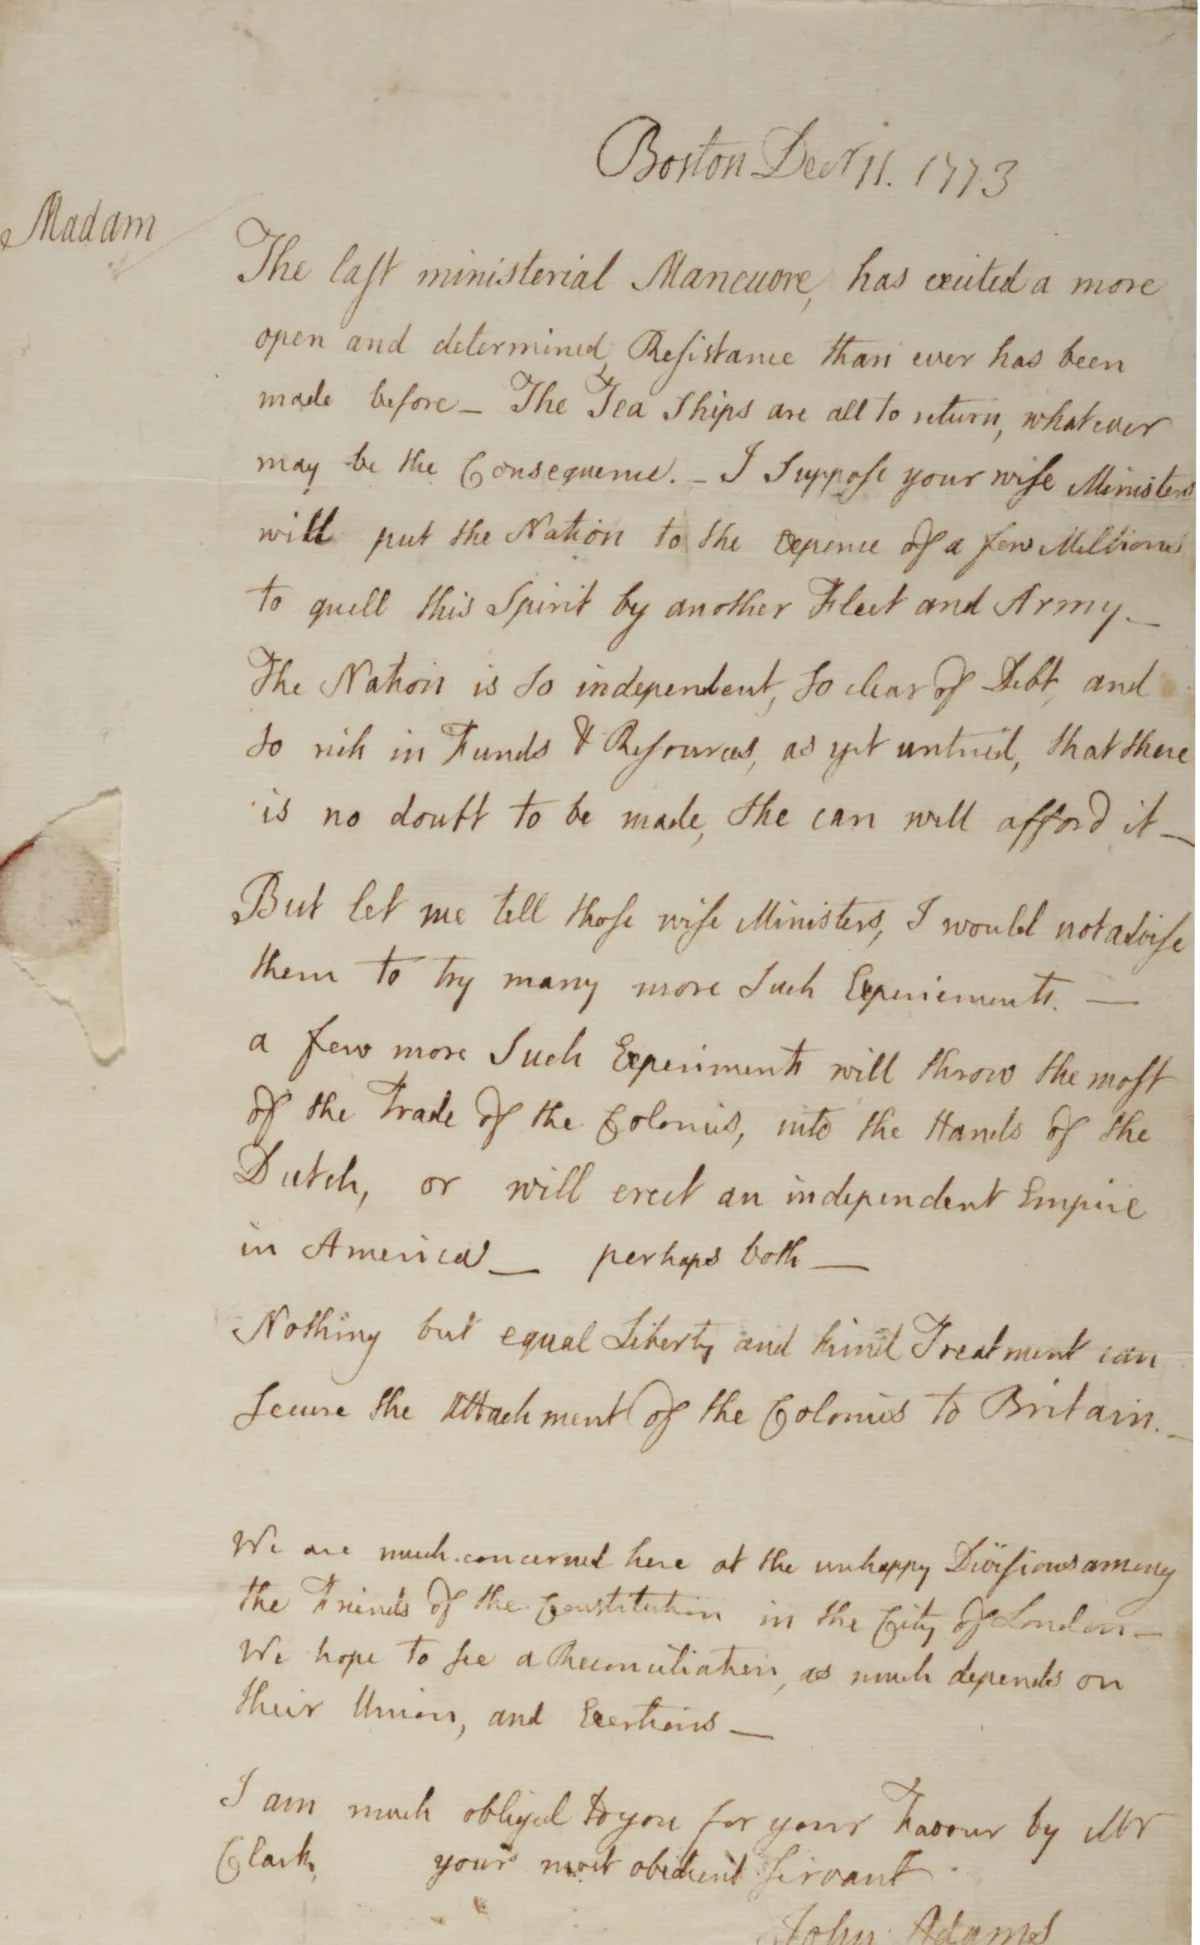 Boston Decr 11. 1773
Madam
The last ministerial Maneuvre, has excited a more
open and determined Resistance than ever has been
made before — The Tea Ships are all to return, whatever
may be the Consequence. — I suppose your wise Ministers
will put the Nation to the expence of a few Millions
to quell this Spirit by another Fleet and Army —
The Nation is so independent, so clear of Debt, and
so rich in Funds & Resources, as yet untried, that there
is no doubt to be made, she can well afford it —
But let me tell those wise Ministers, I would not advise
them to try many more such Experiements. —
a few more such Experiments will throw the most
of the Trade of the Colonies, into the Hands of the
Dutch, or will erect an independent Empire
in America — perhaps both —
Nothing but equal Liberty and kind Treatment can
secure the Attachment of the Colonies to Britain. —
We are much concerned here at the unhappy Divisions among
the Friends of the Constitution in the City of London —
We hope to see a Reconciliation, as much depends on
their Union, and Exertions —
I am much obliged to you for your Favour by Mr
Clark, your most obedient servant
John Adams